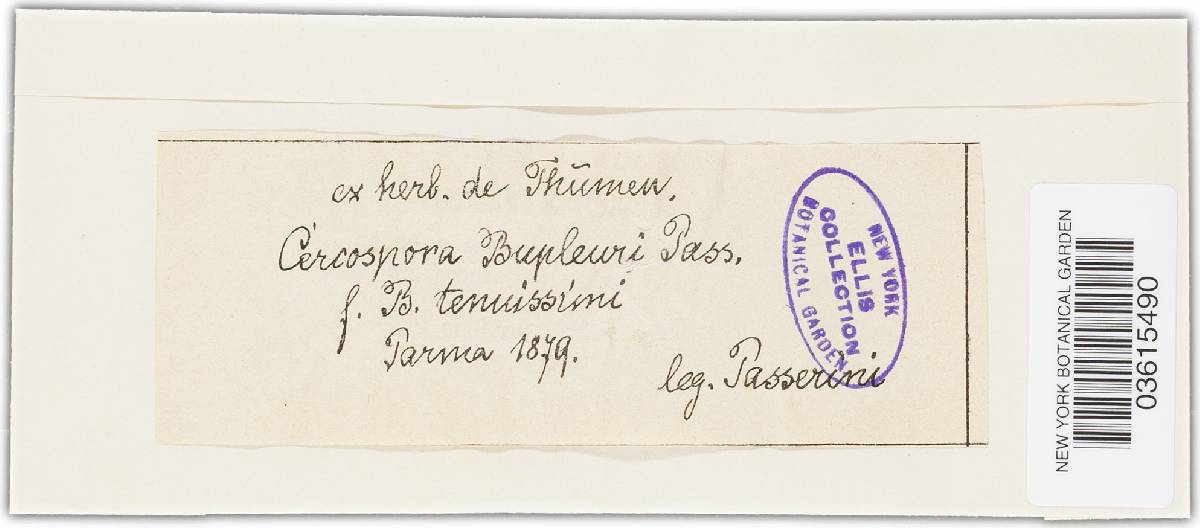 ex herb. de Thümen.
Cercospora Bupleuri Pass.
f. B. tenuissimi
Parma 1879.
leg. Passerini
NEW YORK
ELLIS
COLLECTION
BOTANICAL GARDEN
NEW YORK BOTANICAL GARDEN
03615490